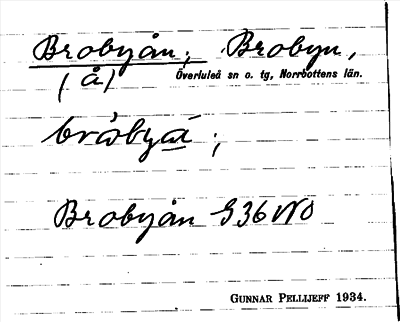 Brobyån; Brobyn,
(å) Överluleå sn o. tg, Norrbottens län.
bråbyå ;
Brobyån G36NO
GUNNAR PELLIJEFF 1934.